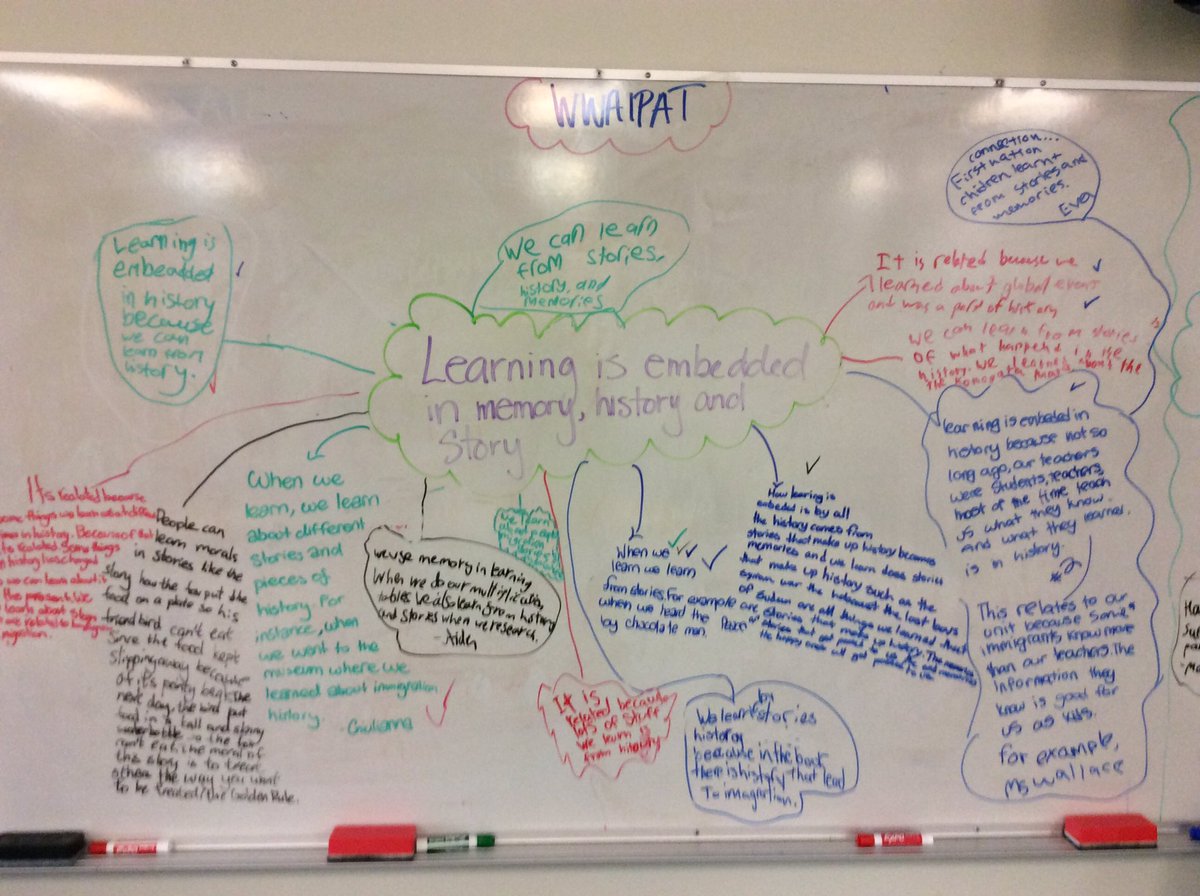 WWAIPAT
connection...
First nation
chidren learnt
from stories and
memories.
Eva
Learning is
embeadded
in history
because
we can
learn from
history.
We can learn
from stories,
history, and
memories
It is related because we
learned about global event
and was a part of history
we can learn from stories
of what happend in the
history. We learned about the
the Komagata
Learning is embedded
in memory, history and
Story
learning is embeded in
history because not so
long ago, our teachers
were students, teachers
most of the time teach
us what they know
and what they learned.
is in history.
#2
This relates to our
unit because some
immigrants know more
than our teachers. The
information they
know is good for
us as kids.
for example,
Ms Wallace
Its realated because
some things we learn
in history. Because of that
realated some things
in history has changed
we can learn about
the present. We
learn about
are related to
People can
learn morals
in stories like the
story how the fox put the
food on a plate so his
friend bird can't eat
since the food kept
slipping away because
of it's pointy beak. The
next day, the bird put
food in a tall and skinny
waterbottle so the fox
can't eat. The moral of
the story is to treat
others the way you want
to be treated/the Golden Rule.
When we
learn, we learn
about different
stories and
pieces of
history. For
instance, when
we went to the
museum where we
learned about immigration
history.
Giulianna
we use memory in learning
When we do our multiplication
tables we also learn from history
and stories when we research.
-Aiden
we learn
about
migration
It is
related because
lots of stuff
we learn is
from history
When we
learn we learn
from stories. For example
when we heard the Peace
by chocolate man.
How learing is
embeded is by all
the history comes from
stories that make up history becomes
memories and we learn does stories
that make up history such as the
syrian war the holocaust the lost boys
of Sudan are all things we learned that
are stories that make up history. The memories
by
We learn stories
history
because in the book
there is history that lead
To imagration.